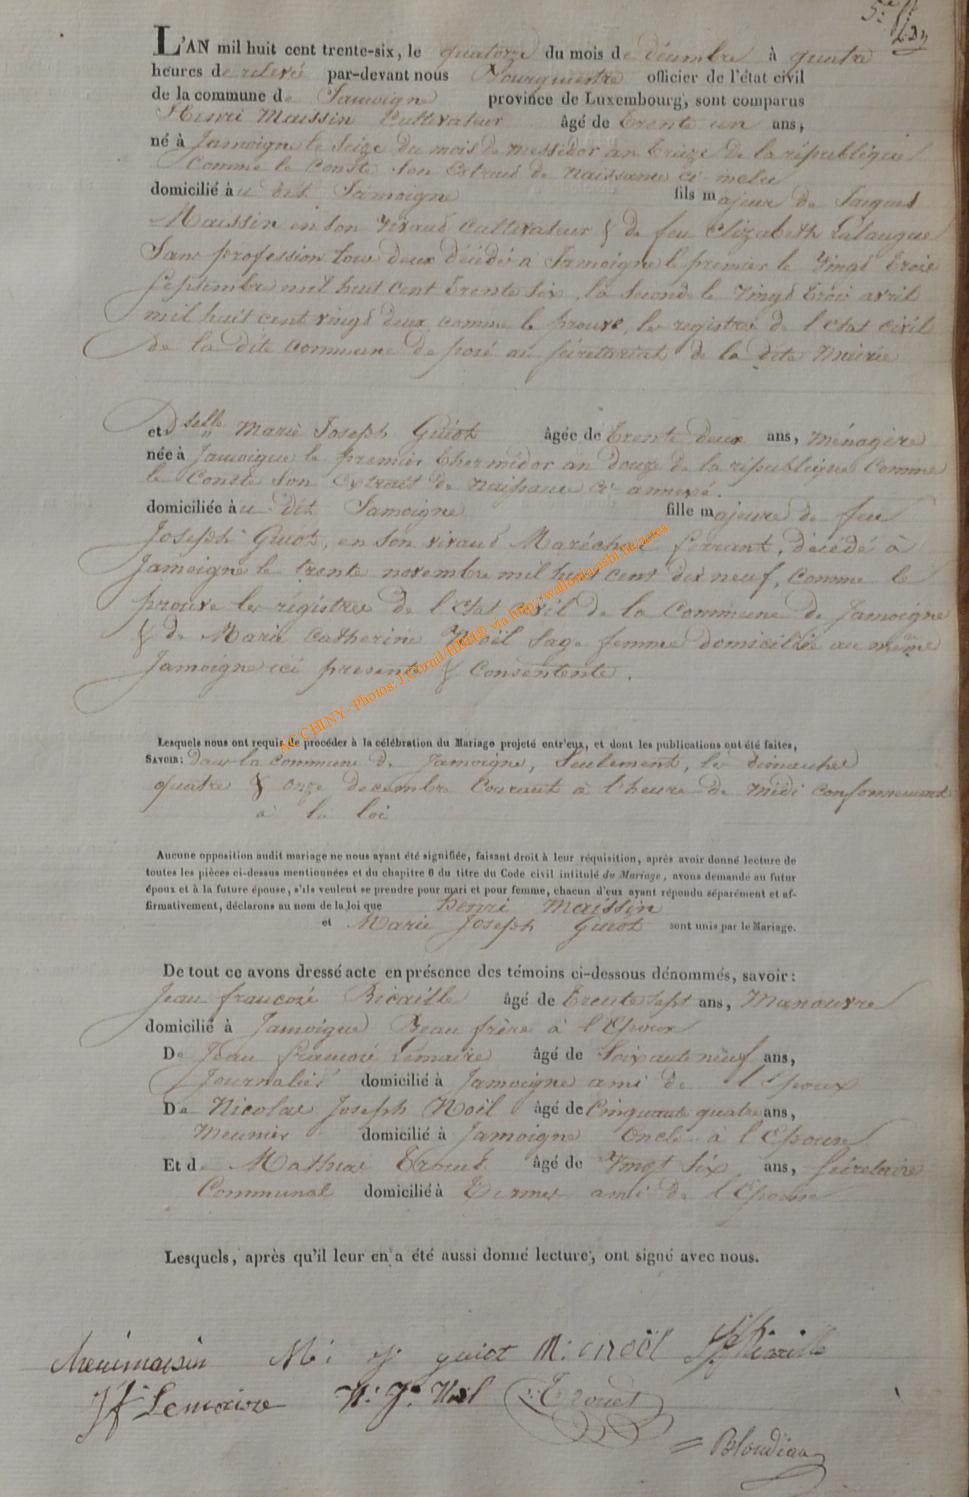 5.e f.
L'AN mil huit cent trente-six, le quatorze du mois de décembre à quatre
heures de relevé par-devant nous Bourgmestre officier de l'état civil
de la commune de Jamoigne province de Luxembourg, sont comparus
Henri Maissin Cultivateur âgé de trente un ans,
né à Jamoigne le seize du mois de messidor an treize de la république
comme le conste son Extrait de naissance ci inclu
domicilié au dit Jamoigne fils majeur de Jacques
Maissin en son vivant cultivateur & de feu Elizabeth Lalangue
Sans profession tous deux décédés à Jamoigne le premier le vingt trois
Septembre mil huit cent trente six, la seconde le vingt trois avril
mil huit cent vingt deux, comme le prouve, les registres de l'Etat civil
de la dite commune déposé au sécretariat de la dite Mairie
et Dselle Marie Joseph Guiot âgée de trente deux ans, Ménagère
née à Jamoigne le premier thermidor an douze de la république comme
le Conste son Extrait de naissance ci annexé.
domiciliée au dit Jamoigne fille majeure de feu
Joseph Guiot, en son vivant Maréchal ferrant, décédé à
Jamoigne le trente novembre mil huit cent dix neuf, comme le
prouve les registres de l'Etat civil de la Commune de Jamoigne
& de Marie Catherine Noël Sage femme domiciliée au même
Jamoigne ici presente & Consentente.
AC CHINY - Photos: J. Cornil/HRHE via http://wallonia-asbl.be/actes
Lesquels nous ont requis de procéder à la célébration du Mariage projeté entr'eux, et dont les publications ont été faites,
SAVOIR: dans la commune de Jamoigne, Seulement, les dimanches
quatre & onze decembre Courant à l'heure de midi conformement
à la loi
Aucune opposition audit mariage ne nous ayant été signifiée, faisant droit à leur réquisition, après avoir donné lecture de
toutes les pièces ci-dessus mentionnées et du chapitre 6 du titre du Code civil intitulé du Mariage, avons demandé au futur
époux et à la future épouse, s'ils veulent se prendre pour mari et pour femme, chacun d'eux ayant répondu séparément et af-
firmativement, déclarons au nom de la loi que Henri Maissin
et Marie Joseph Guiot sont unis par le Mariage.
De tout ce avons dressé acte en présence des témoins ci-dessous dénommés, savoir:
Jean françois Ricaille âgé de trente sept ans, Manouvre
domicilié à Jamoigne Beau frère à l'Epoux
De Jean françois Lemaire âgé de Soixante neuf ans,
Journalier domicilié à Jamoigne ami de l'Epoux
De Nicolas Joseph Noël âgé de Cinquante quatre ans,
Meunier domicilié à Jamoigne Oncle à l'Epouse
Et de Mathias Trouet âgé de Vingt Six ans, Sécretaire
Communal domicilié à Termes ami de l'Epouse
Lesquels, après qu'il leur en a été aussi donné lecture, ont signé avec nous.
henrimaissin M: j guiot M: c noël Jf Ricaille
Jf Lemaire N: J. Noel Trouet
Blondiau